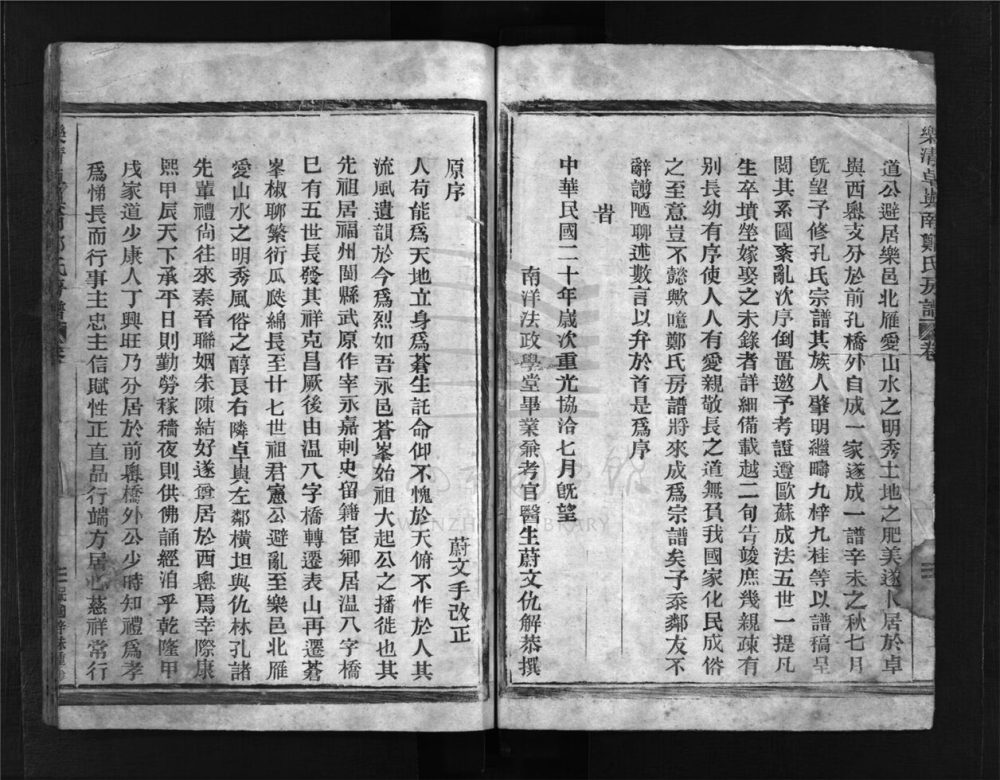 道公避居樂邑北雁愛山水之明秀土地之肥美遂卜居於卓
與西嶴支分於前孔橋外自成一家遂成一譜辛未之秋七月
旣望予修孔氏宗譜其族人肇明繼疇九梓九桂等以譜稿呈
閱其系圖紊亂次序倒置邀予考證遵歐蘇成法五世一提凡
生卒墳塋嫁娶之未錄者詳細備載越二旬告竣庶幾親疎有
别長幼有序使人人有愛親敬長之道無負我國家化民成俗
之至意豈不懿歟噫鄭氏房譜將來成爲宗譜矣予忝鄰友不
辭譾陋聊述數言以弁於首是爲序
旹
中華民國二十年歲次重光協洽七月旣望
南洋法政學堂畢業兼考官醫生蔚文仇解恭撰
原序
蔚文手改正
人苟能爲天地立身爲蒼生託命仰不愧於天俯不怍於人其
流風遺韻於今爲烈如吾永邑蒼峯始祖大起公之播徙也其
先祖居福州閩縣武原作宰永嘉刺史留籍宦卿居溫八字橋
巳有五世長發其祥克昌厥後由溫八字橋轉遷表山再遷蒼
峯椒聊繁衍瓜瓞綿長至廿七世祖君憲公避亂至樂邑北雁
愛山水之明秀風俗之醇良右隣卓與左鄰橫坦與仇林孔諸
先董禮尙往來秦晉聯姻朱陳結好遂爰居於西嶴焉幸際康
熙甲辰天下承平日則勤勞稼穡夜則供佛誦經洎乎乾隆甲
戌家道少康人丁興旺乃分居於前嶴橋外公少時知禮爲孝
爲悌長而行事主忠主信賦性正直品行端方居心慈祥常行
WENZHOU LIBRARY